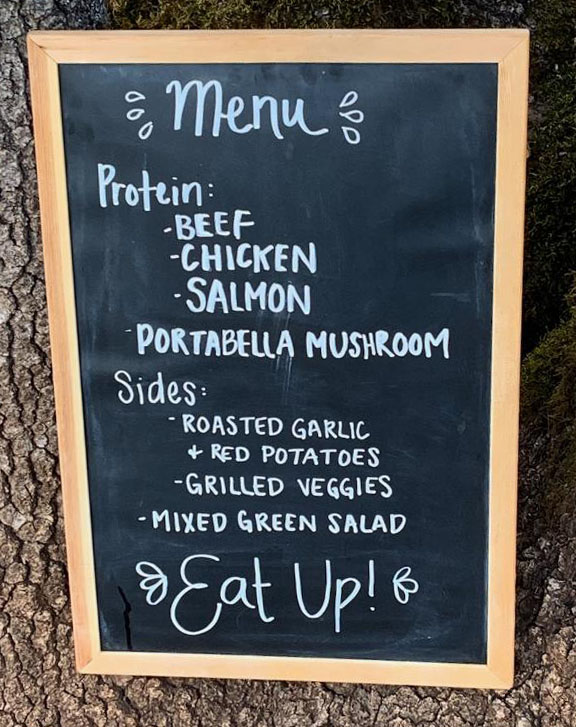 Menu
Protein:
-BEEF
-CHICKEN
-SALMON
-PORTABELLA MUSHROOM
Sides:
-ROASTED GARLIC
+ RED POTATOES
-GRILLED VEGGIES
-MIXED GREEN SALAD
Eat Up!